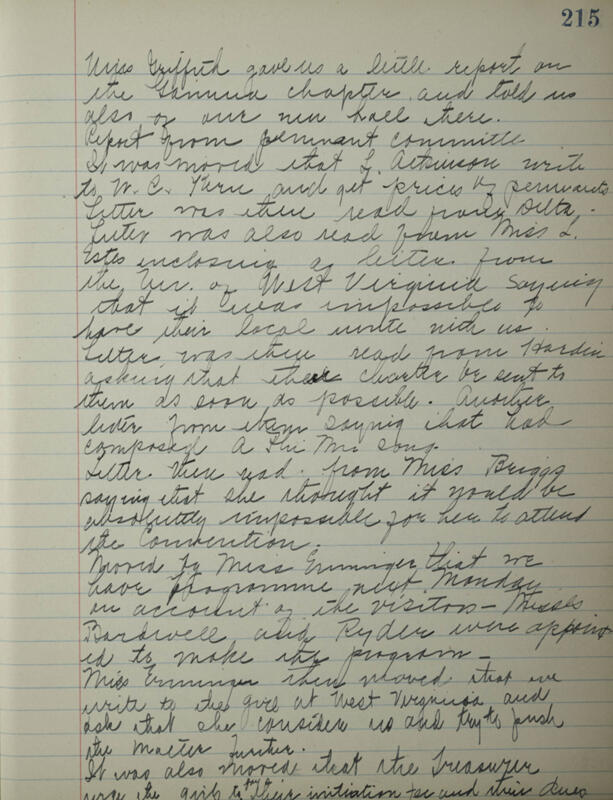 215
Miss Griffith gave us a little report on
the Gamma chapter and told us
also of our new hall there.
Report from pennant committee
It was moved that L. Atkinson write
to W. C. Kern and get prices of pennants
Letter was then read from Delta.
Letter was also read from Miss L.
Estes inclosing a letter from
the Uni. of West Virginia saying
that it was impossible to
have their local unite with us.
Letter was then read from Hardin
asking that their charter be sent to
them as soon as possible. Another
letter from them saying that had
composed A Phi Mu song.
Letter then read from Miss Briggs
saying that she thought it would be
absolutely impossible for her to attend
the Convention.
Moved by Miss Erminger that we
have programme next Monday
on account of the visitors - Misses
Bardwell and Ryder were appoint
ed to make the program -
Miss Erminger then moved that we
write to the girl at West Virginia and
ask that she consider us and try to push
the matter further.
It was also moved that the Treasurer
urge the girls to their initiation fee and their dues